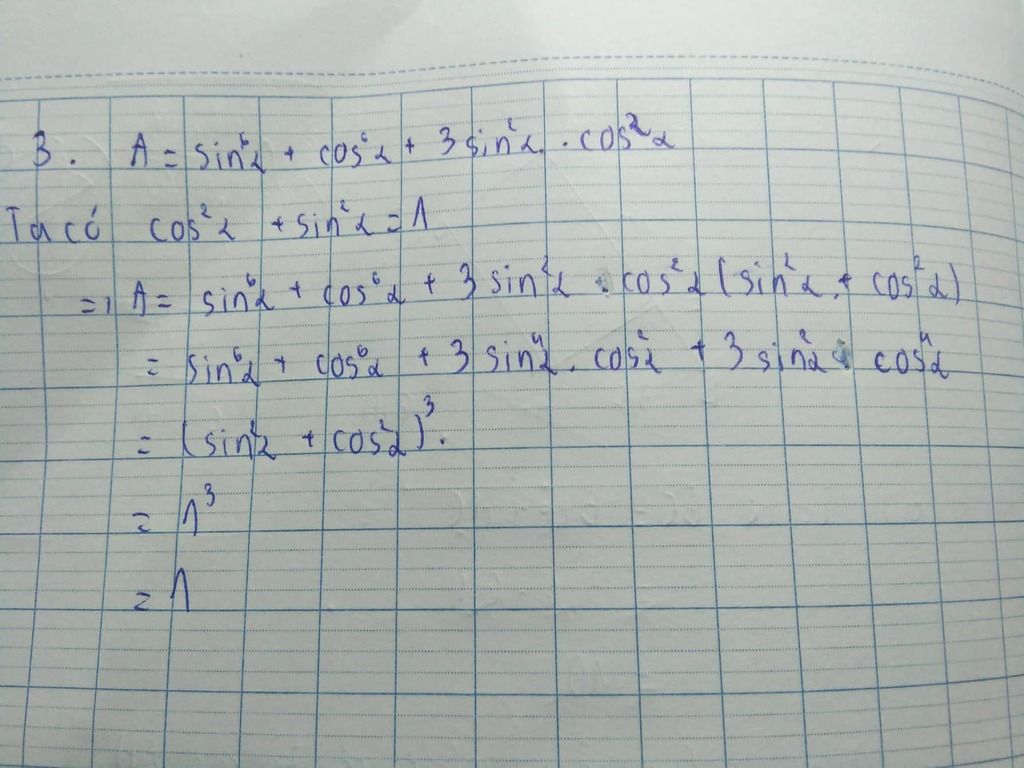 3. A = sin⁶α + cos⁶α + 3 sin²α . cos²α
Ta có cos²α + sin²α = 1
=> A = sin⁶α + cos⁶α + 3 sin²α . cos²α (sin²α + cos²α)
= sin⁶α + cos⁶α + 3 sin⁴α . cos²α + 3 sin²α . cos⁴α
= (sin²α + cos²α)³.
= 1³
= 1